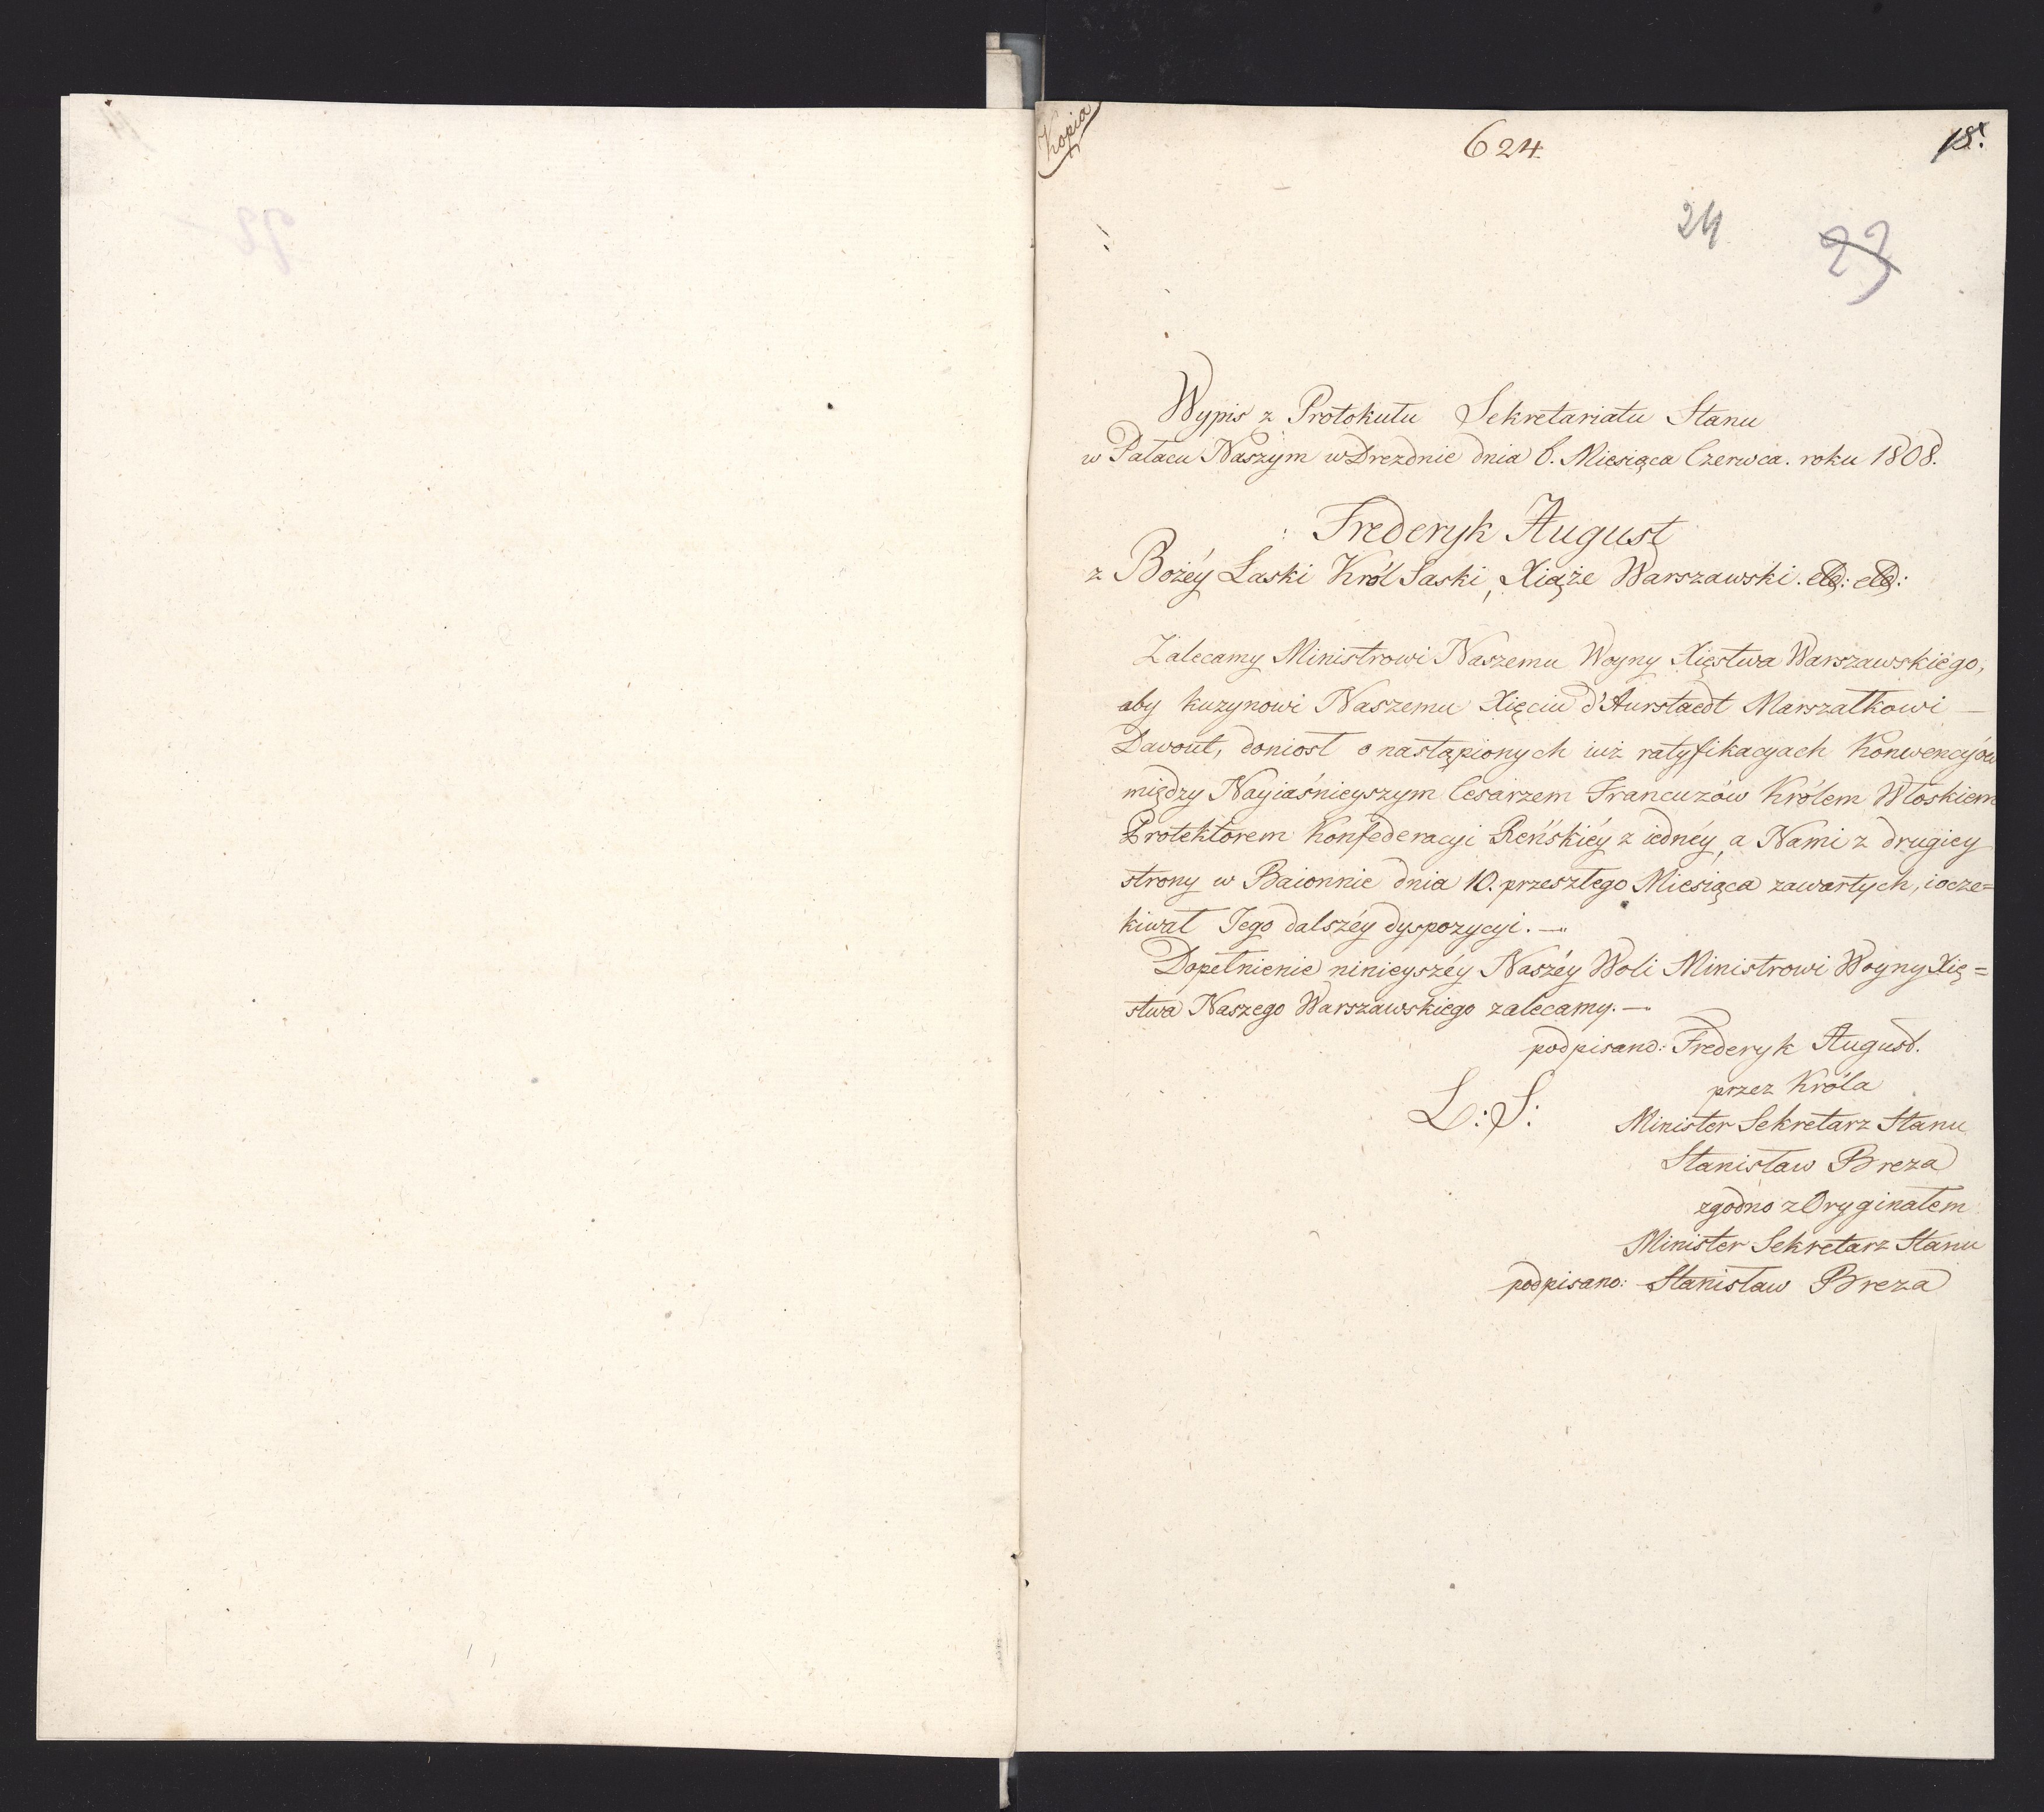 Kopia
624.
18.
24
23
Wypis z Protokułu Sekretariatu Stanu
w Pałacu Naszym w Dreznie dnia 6. Miesiąca Czerwca. roku 1808.
Frederyk August
z Bożéy Łaski Król Saski, Xiąże Warszawski. etc: etc:
Zalecamy Ministrowi Naszemu Woyny Xięstwa Warszawskiégo,
aby kuzynowi Naszemu Xięciu d'Aurstaedt Marszałkowi —
Davout, doniosł o nastąpionych iuż ratyfikacyach Konwencyów
między Nayiaśnieyszym Cesarzem Francuzów Królem Włoskiem
Protektorem Konfederacyi Reńskiéy z iednéy, a Nami z drugiey
strony w Baionnie dnia 10. przeszłego Miesiąca zawartych, i ocze=
kiwał Jego dalszéy dyspozycyi. —
Dopełnienie ninieyszéy Naszéy Woli Ministrowi Woyny Xię=
stwa Naszego Warszawskiego zalecamy. —
podpisano: Frederyk August.
przez Króla
L: S: Minister Sekretarz Stanu
Stanisław Breza
zgodno z Oryginałem
Minister Sekretarz Stanu
podpisano: Stanisław Breza